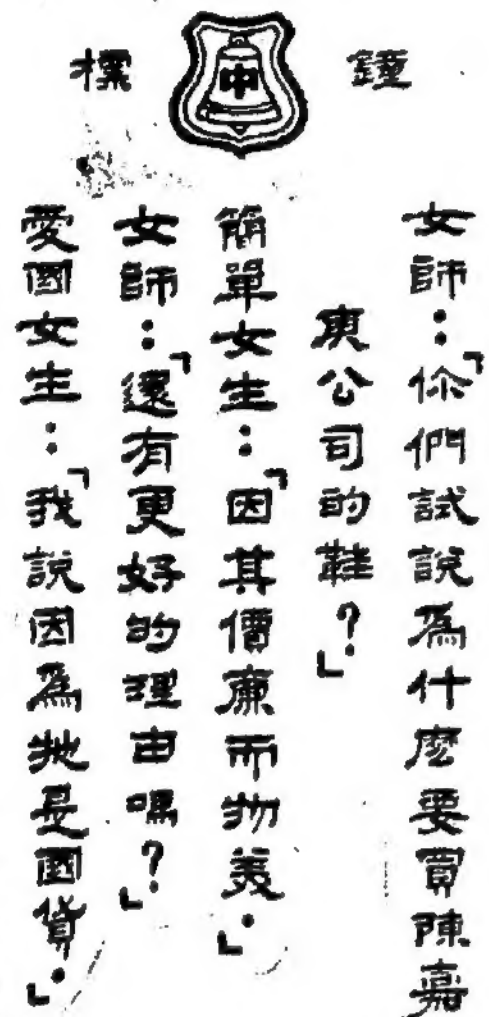 鐘標
中
女師：「你們試說為什麼要買陳嘉
庚公司的鞋？」
簡單女生：「因其價廉而物美．」
女師：「還有更好的理由嗎？」
愛國女生：「我說因為牠是國貨．」